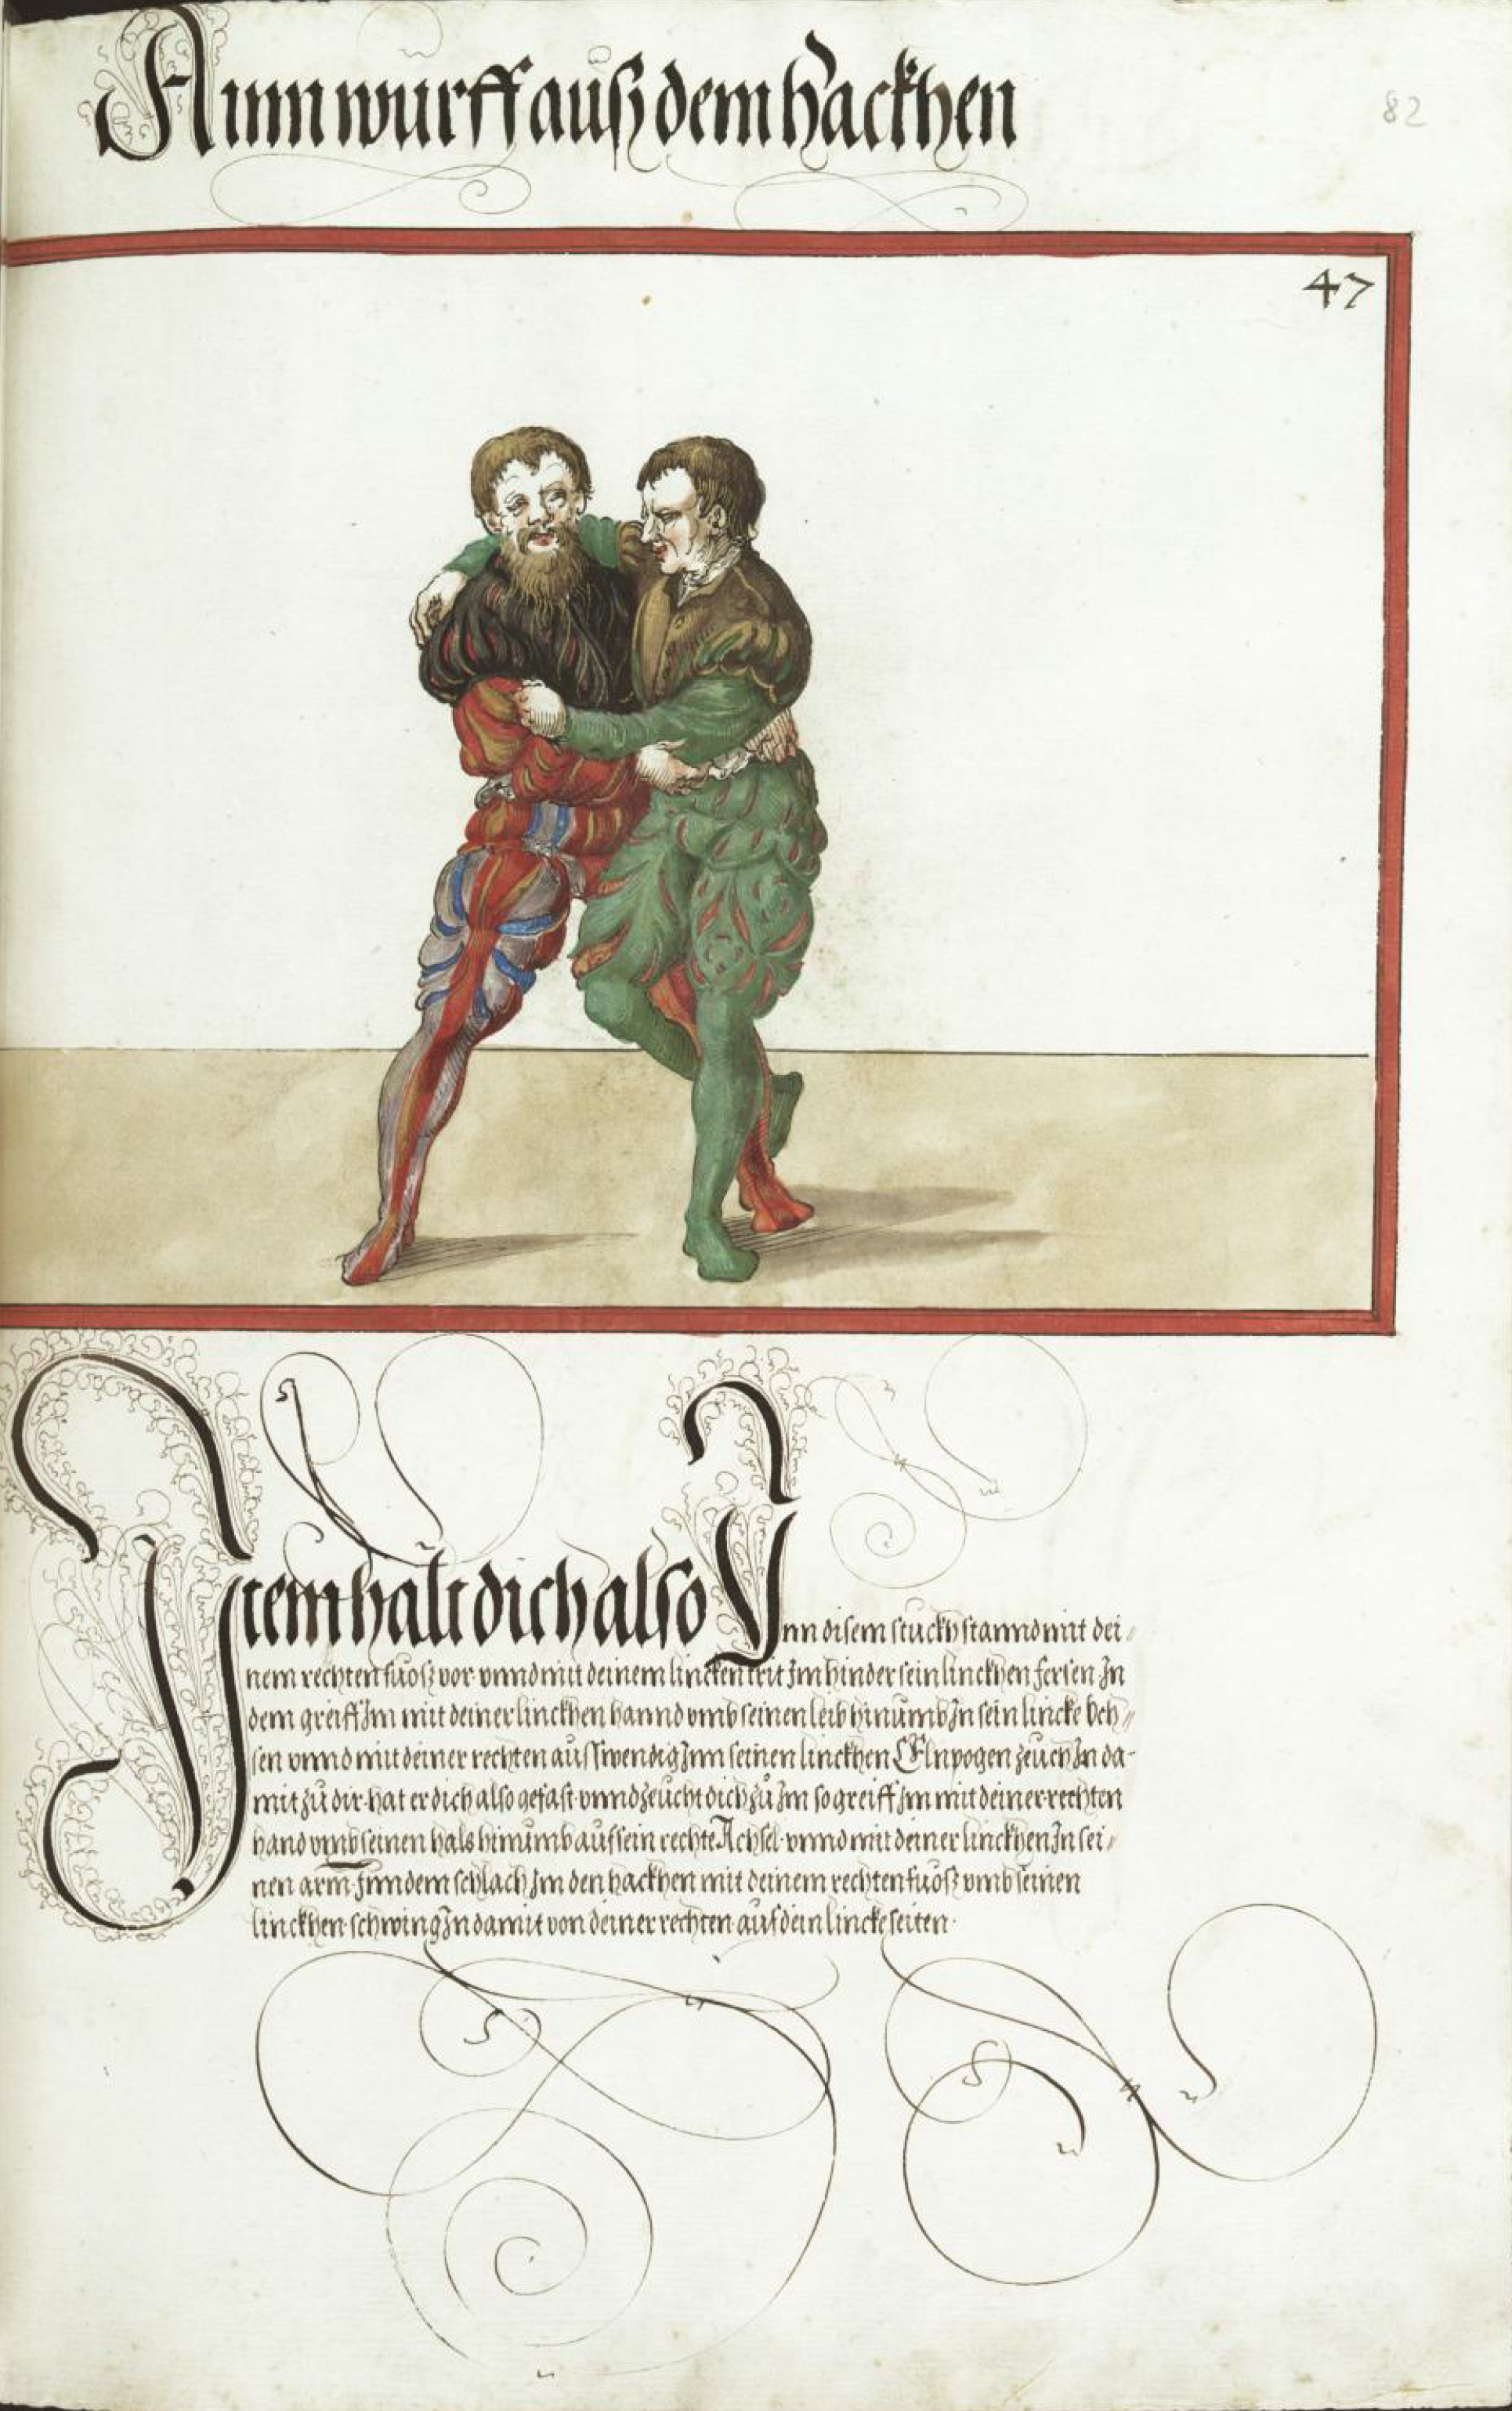 Ainn wurff auß dem hackhen
82
47
Item hallt dich also Inn disem stuckh stannd mit dei⸗
nem rechten fuoß vor vnnd mit deinem lincken trit Im hinder sein linckhen fersen In
dem greiff Im mit deiner linckhen hannd vmb seinen leib hinumb In sein lincke Vch⸗
sen vnnd mit deiner rechten ausswendig Inn seinen linckhen Elnpogen zeuch In da⸗
mit zü dir hat er dich also gefast vnnd zeucht dich zü Im so greiff Im mit deiner rechten
hand vmb seinen hals hinumb auf sein rechte Achsel vnnd mit deiner linckhen In sei⸗
nen arm Inn dem schlach Im den hackhen mit deinem rechten fuoß vmb seinen
linckhen schwing In damit von deiner rechten auf dein lincke seiten